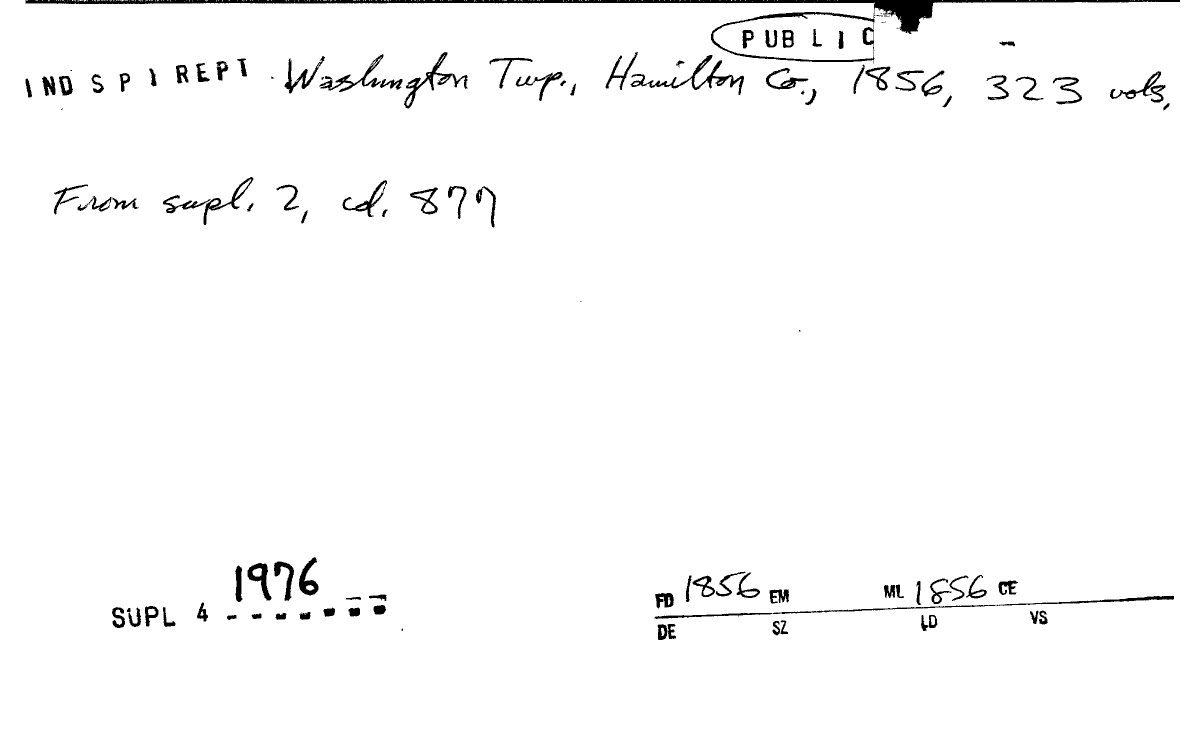 PUBLIC
IND S P I REPT Washington Twp., Hamilton Co., 1856, 323 vols.
From supl. 2, cd. 877
1976
SUPL 4
FD 1856 EM ML 1856 CE
DE SZ LD VS